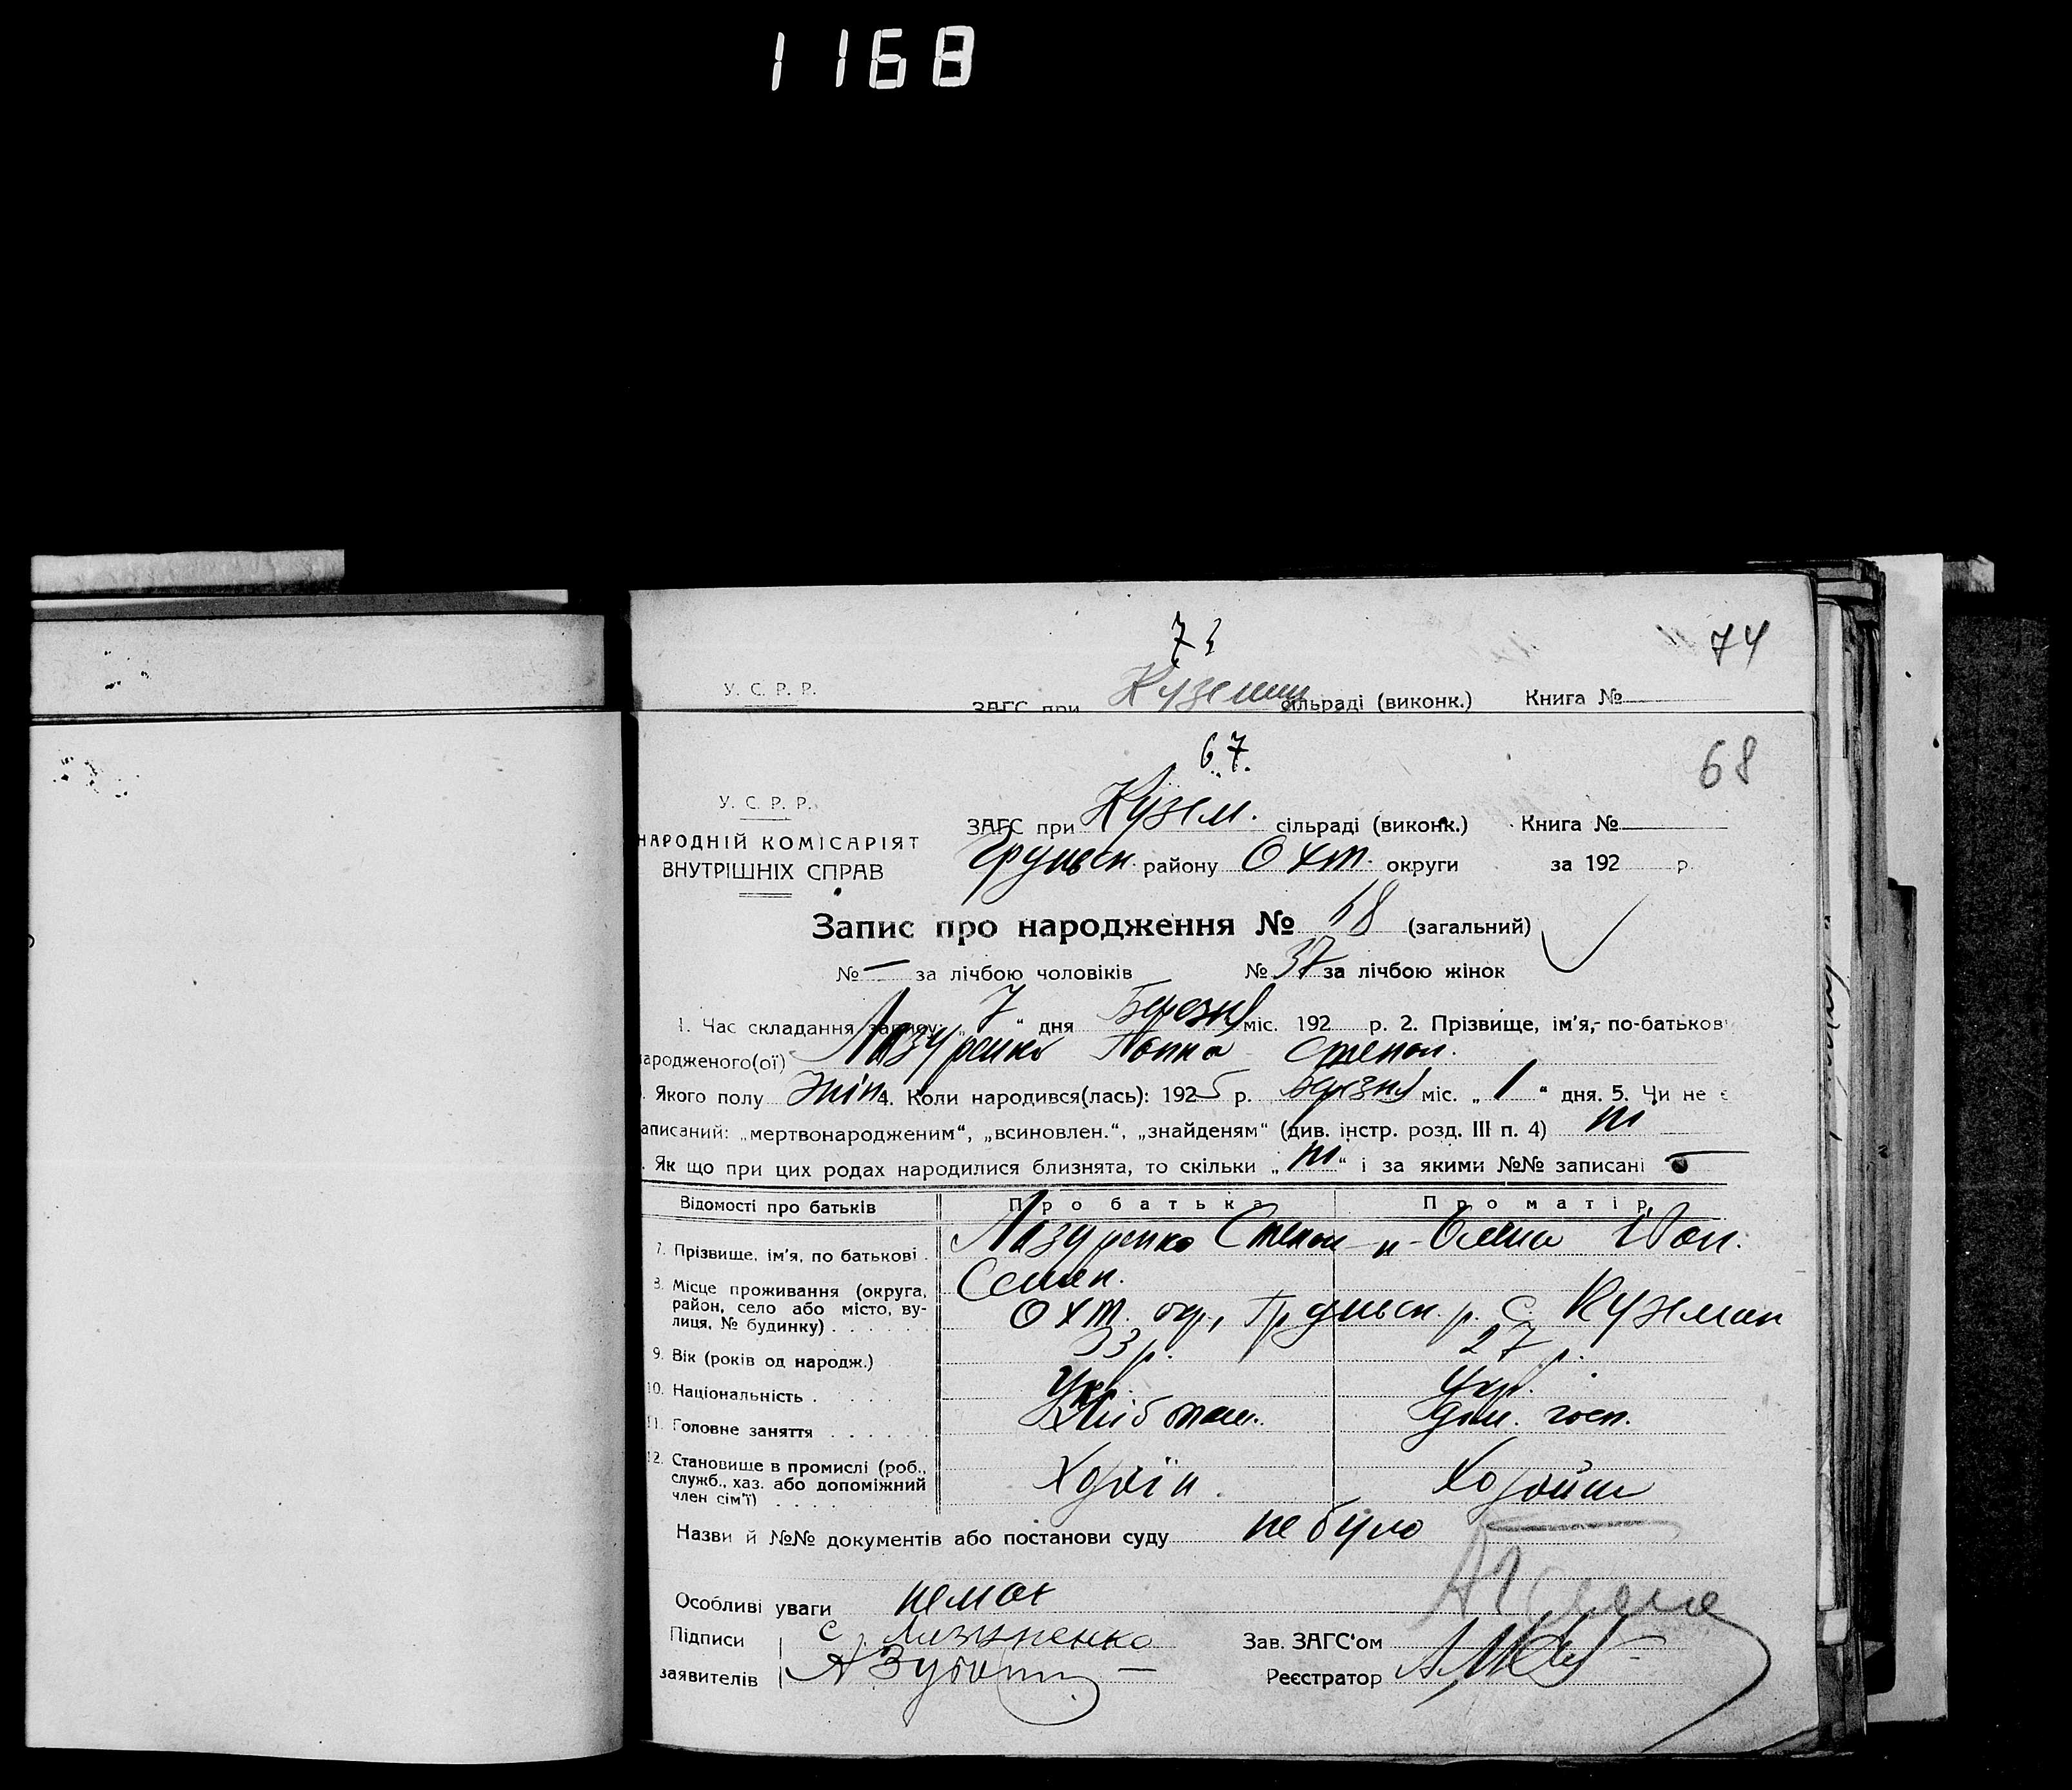 1168
73
74
У. С. Р. Р.
ЗАГС при Куземин сільраді (виконк.) Книга №
67.
68
У. С. Р. Р.
НАРОДНІЙ КОМІСАРІЯТ
ВНУТРІШНІХ СПРАВ
ЗАГС при Кузем. сільраді (виконк.) Книга №
Груньск. району Охт. округи за 192 р.
Запис про народження № 68 (загальний)
№ — за лічбою чоловіків № 37 за лічбою жінок
1. Час складання запису: „ 7 “ дня Березня міс. 192 р. 2. Прізвище, ім'я, по-батькові
народженого(ої) Лазуренко Степан.
Якого полу жін. 4. Коли народився(лась): 1925 р. Березня міс. „ 1 “ дня. 5. Чи не є
записаний: „мертвонародженим“, „всиновлен.“, „знайденям“ (див. інстр. розд. III п. 4) ні
Як що при цих родах народилися близнята, то скільки „ ні “ і за якими №№ записані —
Відомості про батьків Про батька Про матір
7. Прізвище, ім'я, по батькові Лазуренко Степан -„- Олена Іван.
Семен.
8. Місце проживання (округа, район, село або місто, вулиця, № будинку) Охт. окр., Груньск. р. с. Куземин
9. Вік (років од народж.) 33 р. 27 р.
10. Національність Укр. Укр.
11. Головне заняття Хлібопаш. Дом. госп.
12. Становище в промислі (роб., служб., хаз. або допоміжний член сім'ї) Хозяїн. Хозяйка
Назви й №№ документів або постанови суду не було
Особливі уваги немає
Підписи С. Лазуренко Зав. ЗАГС'ом
заявителів Реєстратор